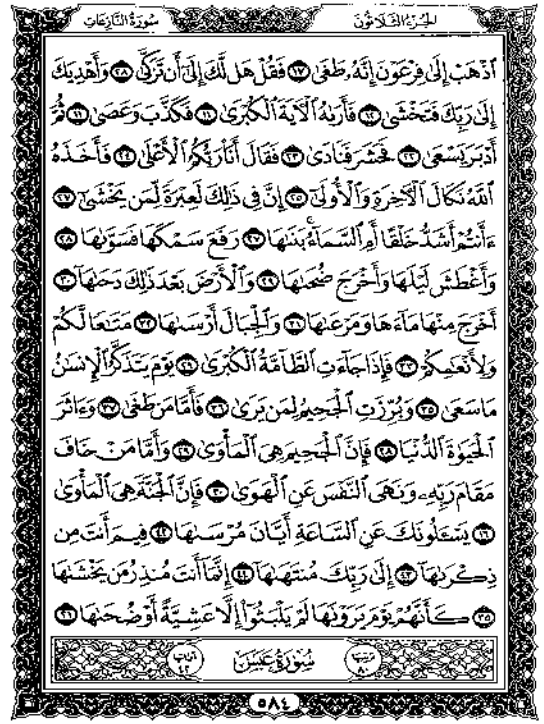 سورة النازعات الجزء الثلاثون
ٱذۡهَبۡ إِلَىٰ فِرۡعَوۡنَ إِنَّهُۥ طَغَىٰ ١٧ فَقُلۡ هَل لَّكَ إِلَىٰٓ أَن تَزَكَّىٰ ١٨ وَأَهۡدِيَكَ
إِلَىٰ رَبِّكَ فَتَخۡشَىٰ ١٩ فَأَرَىٰهُ ٱلۡأٓيَةَ ٱلۡكُبۡرَىٰ ٢٠ فَكَذَّبَ وَعَصَىٰ ٢١ ثُمَّ
أَدۡبَرَ يَسۡعَىٰ ٢٢ فَحَشَرَ فَنَادَىٰ ٢٣ فَقَالَ أَنَا۠ رَبُّكُمُ ٱلۡأَعۡلَىٰ ٢٤ فَأَخَذَهُ
ٱللَّهُ نَكَالَ ٱلۡأٓخِرَةِ وَٱلۡأُولَىٰٓ ٢٥ إِنَّ فِي ذَٰلِكَ لَعِبۡرَةٗ لِّمَن يَخۡشَىٰٓ ٢٦
ءَأَنتُمۡ أَشَدُّ خَلۡقًا أَمِ ٱلسَّمَآءُۚ بَنَىٰهَا ٢٧ رَفَعَ سَمۡكَهَا فَسَوَّىٰهَا ٢٨
وَأَغۡطَشَ لَيۡلَهَا وَأَخۡرَجَ ضُحَىٰهَا ٢٩ وَٱلۡأَرۡضَ بَعۡدَ ذَٰلِكَ دَحَىٰهَآ ٣٠
أَخۡرَجَ مِنۡهَا مَآءَهَا وَمَرۡعَىٰهَا ٣١ وَٱلۡجِبَالَ أَرۡسَىٰهَا ٣٢ مَتَٰعٗا لَّكُمۡ
وَلِأَنۡعَٰمِكُمۡ ٣٣ فَإِذَا جَآءَتِ ٱلطَّآمَّةُ ٱلۡكُبۡرَىٰ ٣٤ يَوۡمَ يَتَذَكَّرُ ٱلۡإِنسَٰنُ
مَا سَعَىٰ ٣٥ وَبُرِّزَتِ ٱلۡجَحِيمُ لِمَن يَرَىٰ ٣٦ فَأَمَّا مَن طَغَىٰ ٣٧ وَءَاثَرَ
ٱلۡحَيَوٰةَ ٱلدُّنۡيَا ٣٨ فَإِنَّ ٱلۡجَحِيمَ هِيَ ٱلۡمَأۡوَىٰ ٣٩ وَأَمَّا مَنۡ خَافَ
مَقَامَ رَبِّهِۦ وَنَهَى ٱلنَّفۡسَ عَنِ ٱلۡهَوَىٰ ٤٠ فَإِنَّ ٱلۡجَنَّةَ هِيَ ٱلۡمَأۡوَىٰ
٤١ يَسۡـَٔلُونَكَ عَنِ ٱلسَّاعَةِ أَيَّانَ مُرۡسَىٰهَا ٤٢ فِيمَ أَنتَ مِن
ذِكۡرَىٰهَآ ٤٣ إِلَىٰ رَبِّكَ مُنتَهَىٰهَآ ٤٤ إِنَّمَآ أَنتَ مُنذِرُ مَن يَخۡشَىٰهَا
٤٥ كَأَنَّهُمۡ يَوۡمَ يَرَوۡنَهَا لَمۡ يَلۡبَثُوٓاْ إِلَّا عَشِيَّةً أَوۡ ضُحَىٰهَا ٤٦
ترتيبها ٨٠ سُورَةُ عَبَسَ آياتها ٤٢
٥٨٤